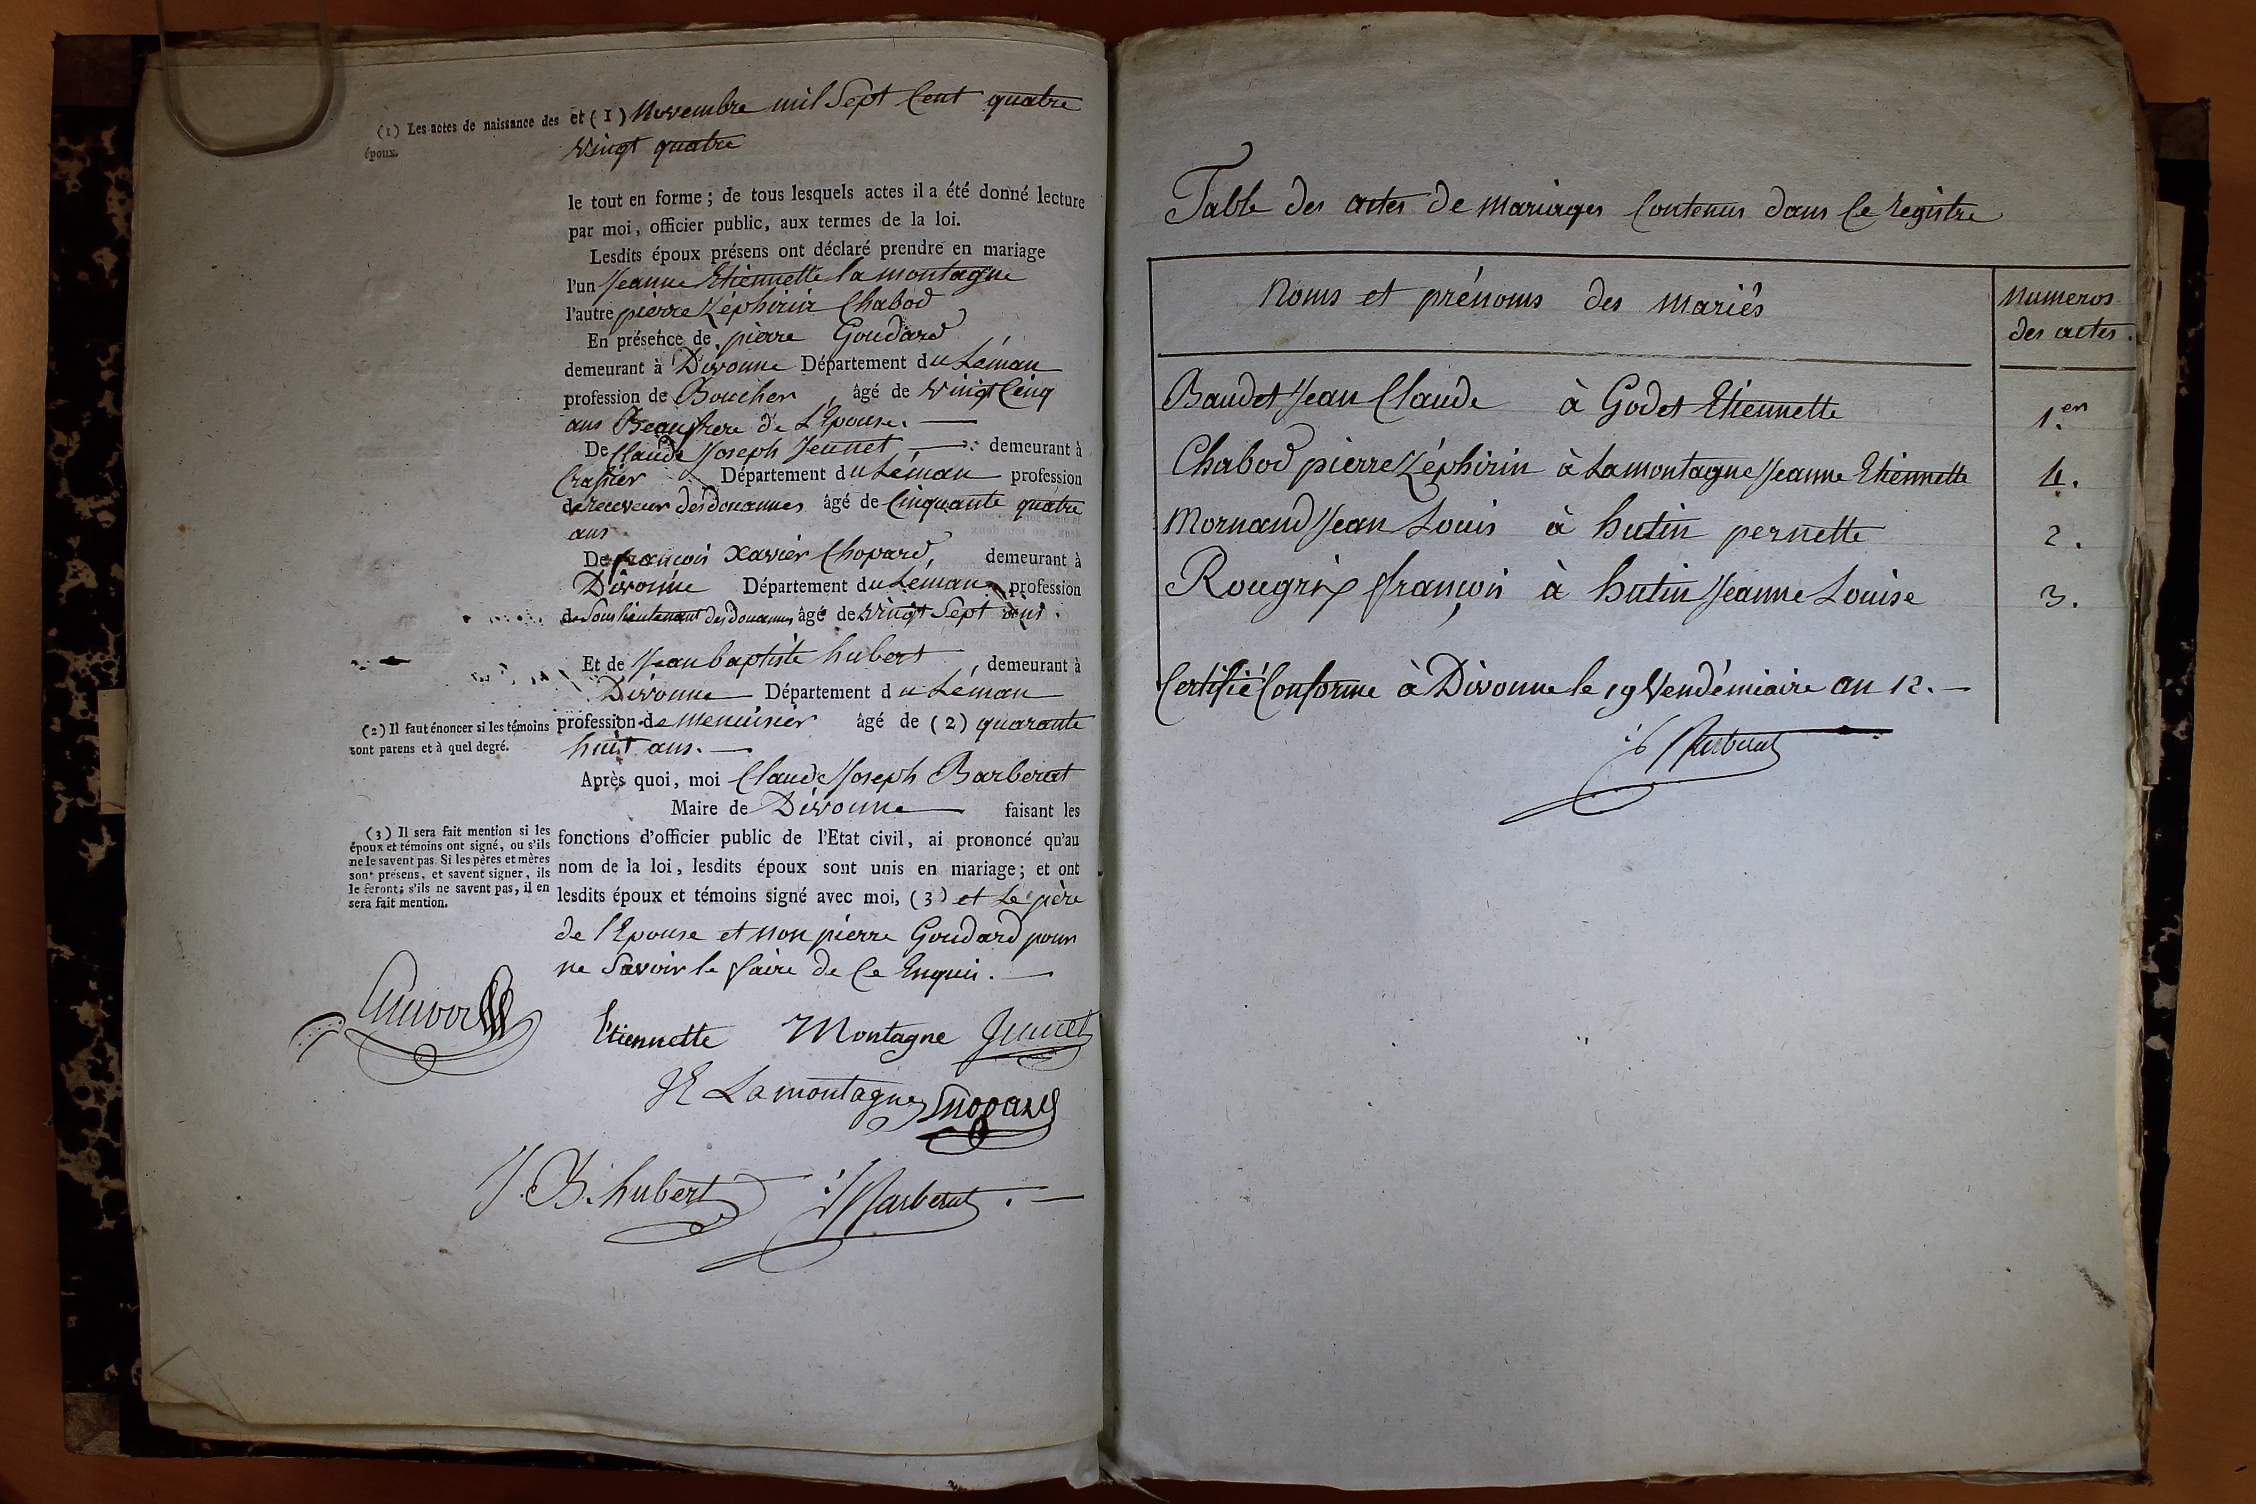 (1) Les actes de naissance des
époux.
et (1) Novembre mil Sept Cent quatre
Vingt quatre
le tout en forme ; de tous lesquels actes il a été donné lecture
par moi, officier public, aux termes de la loi.
Lesdits époux présens ont déclaré prendre en mariage
l'un Jeanne Etiennette la montagne
l'autre pierre Zéphirin Chabod
En présence de pierre Goudard
demeurant à Divonne Département du Léman
profession de Boucher , âgé de Vingt Cinq
ans Beaufrere de L'Epouse.
De Claude Joseph Jeunet demeurant à
Crassier Département du Léman profession
de receveur des douannes âgé de Cinquante quatre
ans
De françois Xavier Chopard, demeurant à
Divonne Département du Léman profession
de Souslieutenant des douannes âgé de Vingt Sept ans.
Et de Jean baptiste hubert , demeurant à
Divonne Département du Léman
profession de menuisier âgé de (2) quarante
huit ans.
(2) Il faut énoncer si les témoins
sont parens et à quel degré.
Après quoi, moi Claude Joseph Barberat
Maire de Divonne faisant les
fonctions d'officier public de l'Etat civil, ai prononcé qu'au
nom de la loi, lesdits époux sont unis en mariage; et ont
lesdits époux et témoins signé avec moi, (3) et Le père
de l'Epouse et non pierre Goudard pour
ne Savoir le faire de Ce Enquis.
(3) Il sera fait mention si les
époux et témoins ont signé, ou s'ils
ne le savent pas. Si les pères et mères
sont présens, et savent signer, ils
le feront; s'ils ne savent pas, il en
sera fait mention.
Etiennette Montagne Jeunet
JE Lamontagne Chopard
J. B. hubert Barberat
Table des actes de mariages Contenus dans Ce registre
Noms et prénoms des mariés
Numeros
des actes.
Baudet Jean Claude à Godet Etiennette 1.er
Chabod pierre Zéphirin à Lamontagne Jeanne Etiennette 4.
Mornand Jean Louis à hutin pernette 2.
Rougrix françois à hutin Jeanne Louise 3.
Certifié Conforme à Divonne le 19 Vendémiaire an 12.
Barberat